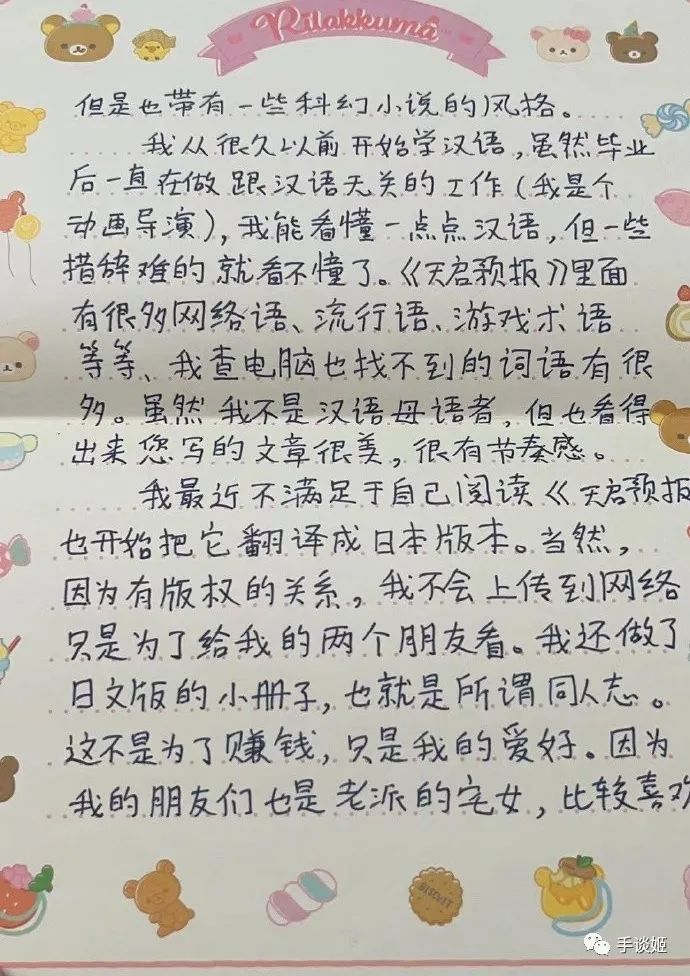 Rilakkuma
但是也带有一些科幻小说的风格。
我从很久以前开始学汉语，虽然毕业
后一直在做跟汉语无关的工作（我是个
动画导演），我能看懂一点点汉语，但一些
措辞难的就看不懂了。《天启预报》里面
有很多网络语、流行语、游戏术语
等等、我查电脑也找不到的词语有很
多。虽然我不是汉语母语者，但也看得
出来您写的文章很美，很有节奏感。
我最近不满足于自己阅读《天启预报
也开始把它翻译成日本版本。当然，
因为有版权的关系，我不会上传到网络
只是为了给我的两个朋友看。我还做了
日文版的小册子，也就是所谓同人志。
这不是为了赚钱，只是我的爱好。因为
我的朋友们也是老派的宅女，比较喜欢
BISCUIT
手谈姬